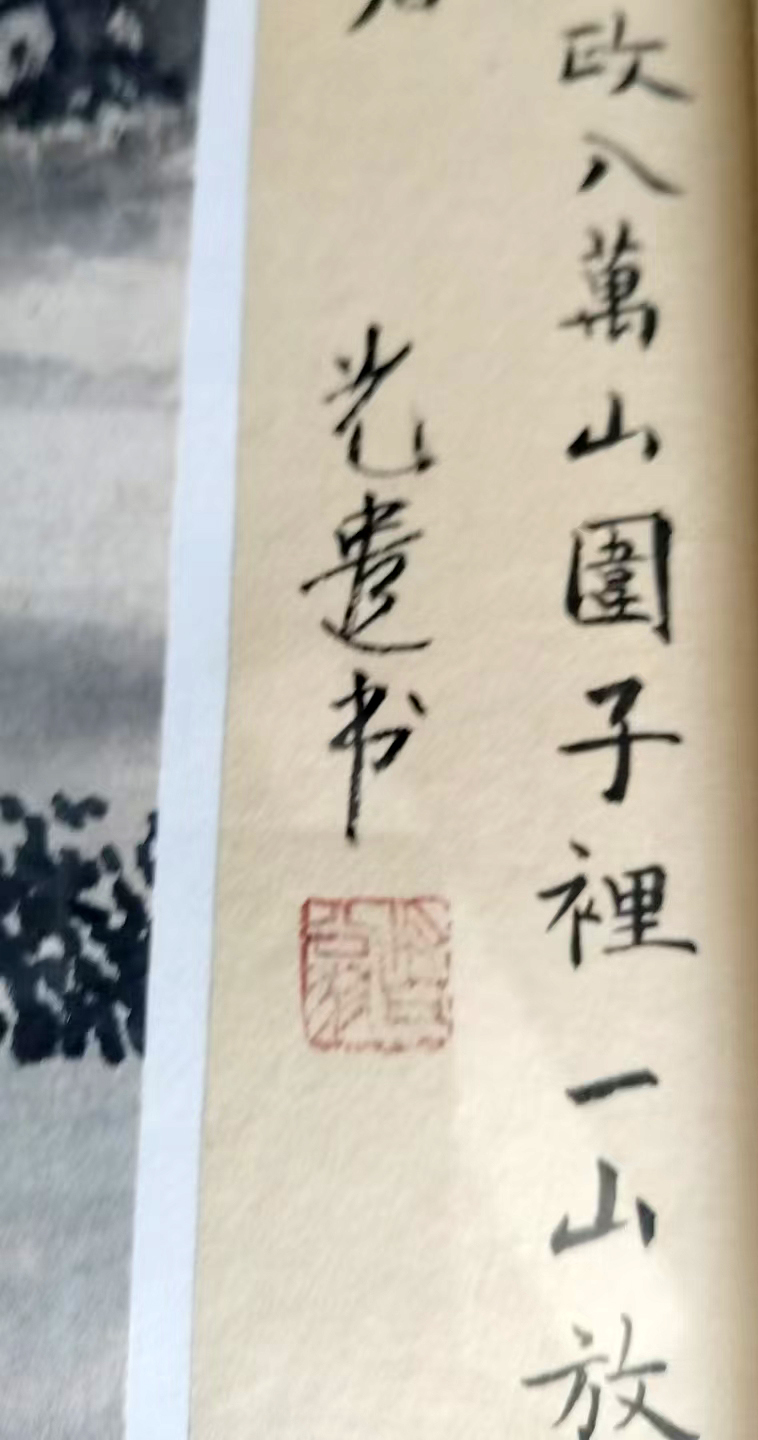 政入萬山圍子裡一山放
光遣书